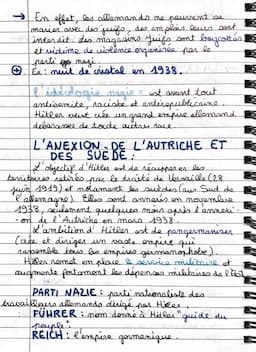 → En effet, les allemands ne peuvent se
marier avec des juifs, des emplois leurs sont
interdit. Les magasins Juifs sont boycottés
et victime de violence organisée par le
parti nazi.
⊕ Ex : nuit de cristal en 1938.
L'idéologie nazie : est avant tout
antisémite, raciste et antirépublicaine.
Hitler veut crée un grand empire allemand
débarassé de toute autre race.
L'ANEXION DE L'AUTRICHE ET
DES SUÈDE :
L'objectif d'Hitler est de récupérer les
territoires retirés par le traité de Versaille (28
juin 1919) et notamment les sudètes (au Sud de
l'allemagne). Elles sont annexés en novembre
1938, seulement quelques mois après l'annexi
-on de l'Autriche en mars 1938.
L'ambition d'Hitler est de pangermaniser
(crée et diriger un vaste empire qui
rassemble tous les empires germanophobe).
Hitler remet en place le service militaire et
augmente fortement les dépenses militaires de l'état
PARTI NAZIE : parti nationaliste des
travailleurs allemands dirigé par Hitler.
FÜHRER : nom donné à Hitler "guide du
peuple".
REICH : l'empire germanique.